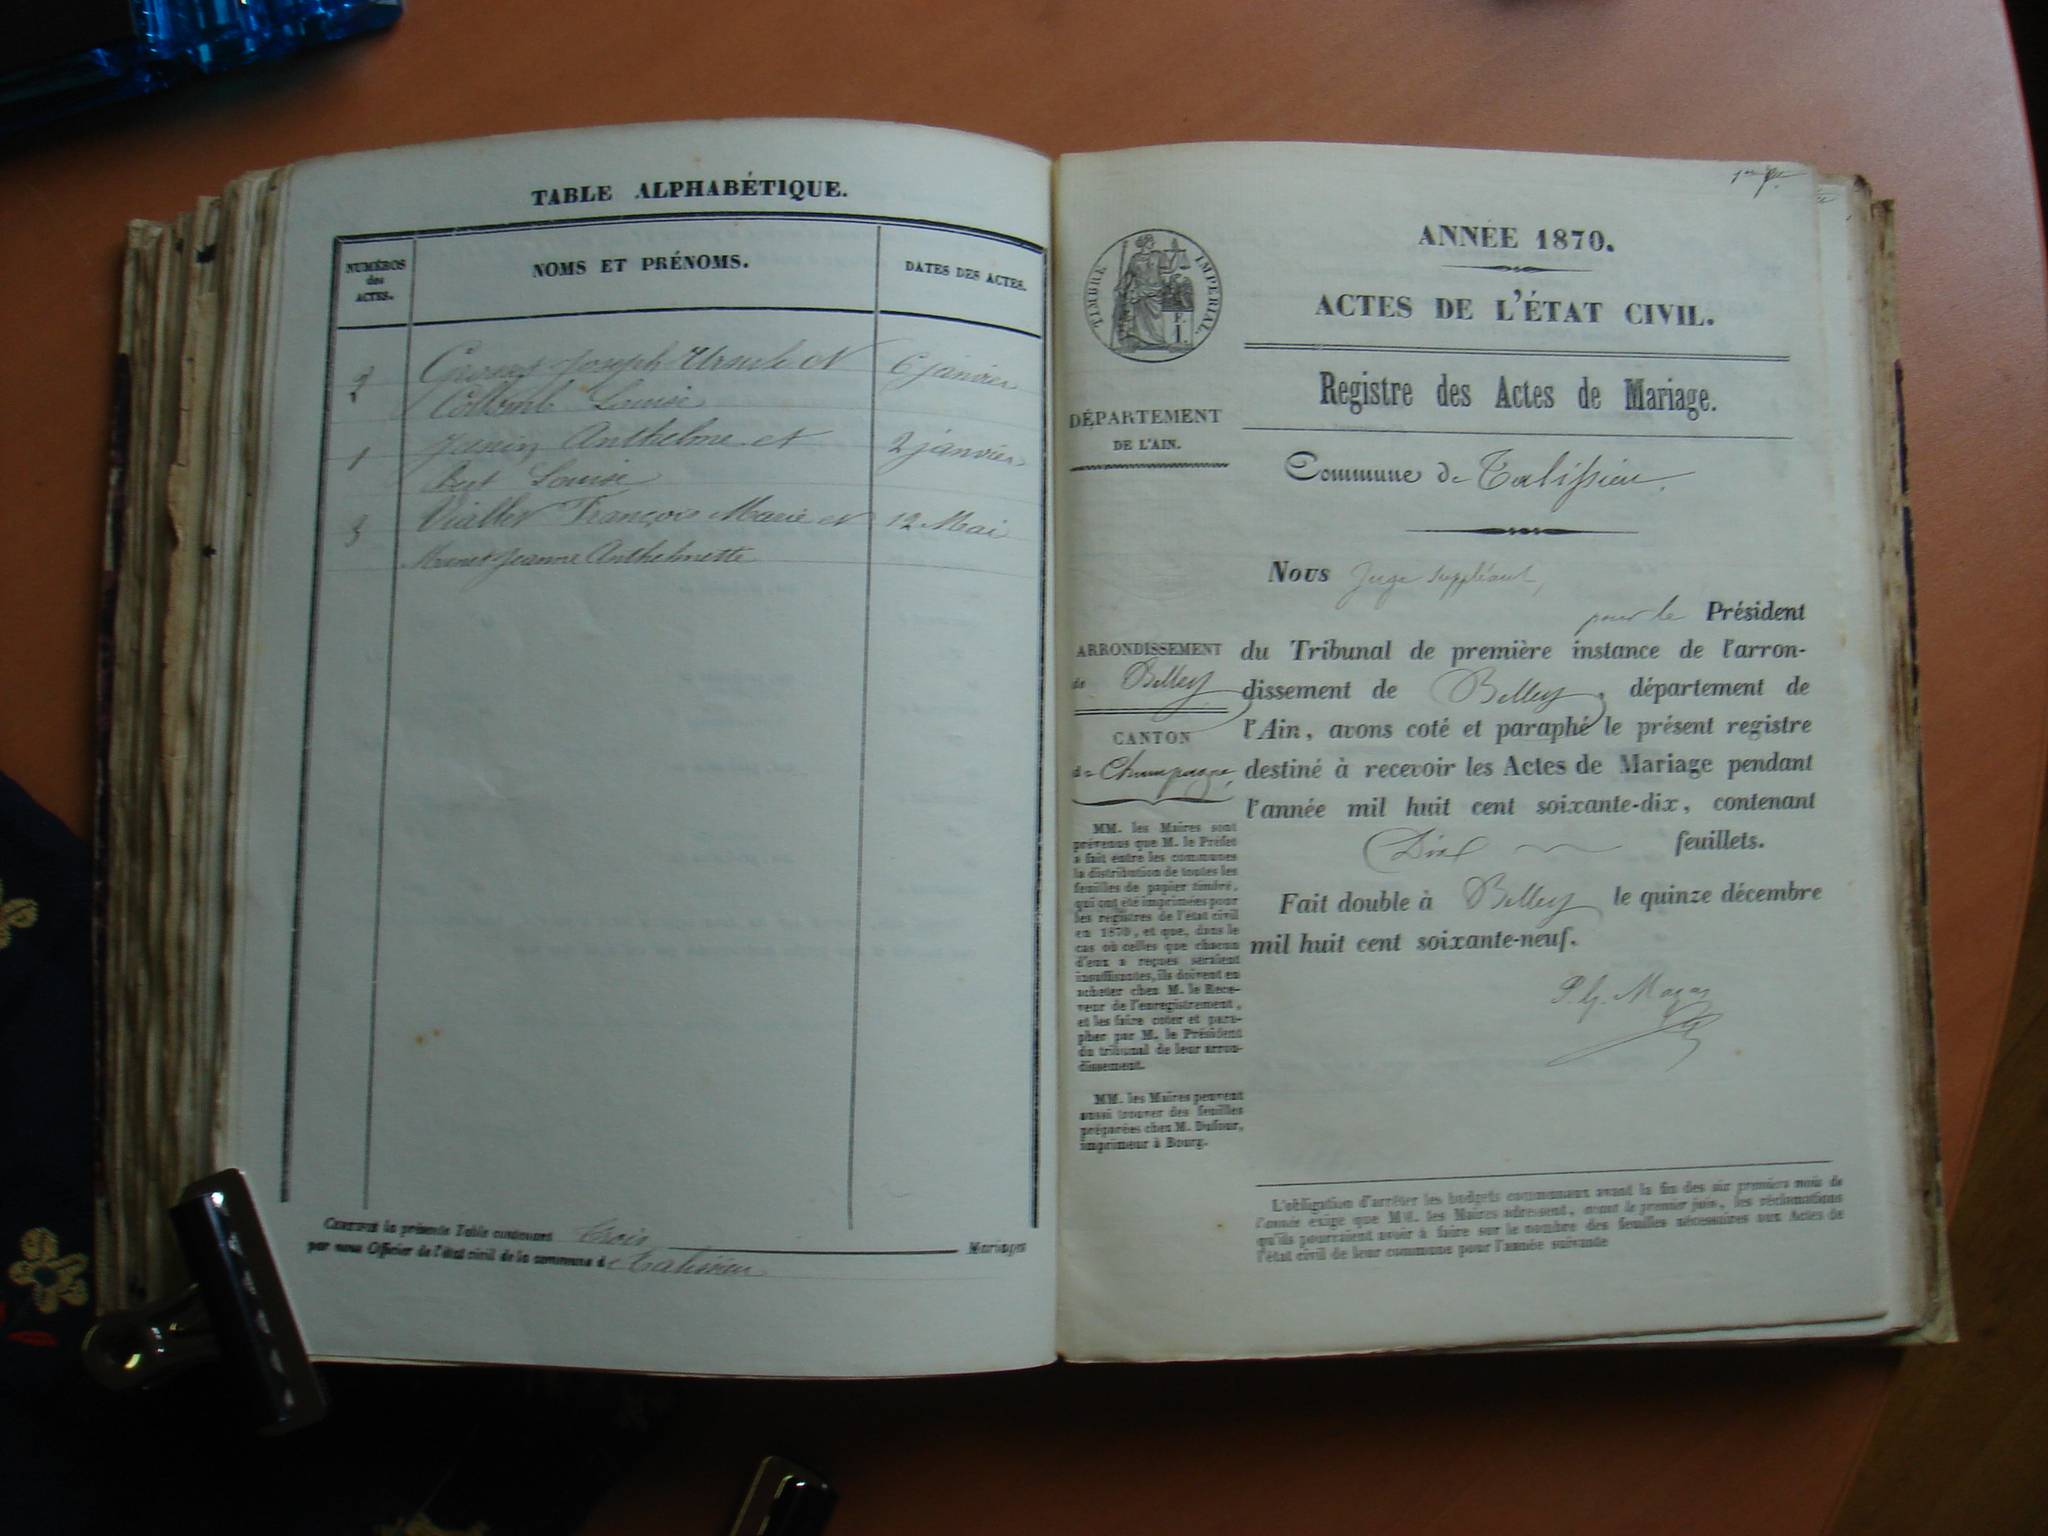 TABLE ALPHABÉTIQUE.
NUMÉROS
des
ACTES.
NOMS ET PRÉNOMS.
DATES DES ACTES.
2
Joseph Ursule et
6 janvier
Collomb Louise
1
Janin Anthelme et
2 janvier
Louise
3
Viallet François Marie et
12 Mai
Jeanne Anthelmette
CERTIFIÉ la présente Table contenant trois Mariages
par nous Officier de l'état civil de la commune de Talissieu
TIMBRE IMPERIAL.
ANNÉE 1870.
ACTES DE L'ÉTAT CIVIL.
Registre des Actes de Mariage.
DÉPARTEMENT
DE L'AIN.
Commune de Talissieu.
ARRONDISSEMENT
de Belley
CANTON
de Champagne
MM. les Maires sont
prévenus que M. le Préfet
a fait entre les communes
la distribution de toutes les
feuilles de papier timbré,
qui ont été imprimées pour
les registres de l'état civil
en 1870, et que, dans le
cas où celles que chacun
d'eux a reçues seraient
insuffisantes, ils doivent en
acheter chez M. le Rece-
veur de l'enregistrement,
et les faire coter et para-
pher par M. le Président
du tribunal de leur arron-
dissement.
MM. les Maires peuvent
aussi trouver des feuilles
préparées chez M. Dufour,
imprimeur à Bourg.
Nous Juge suppléant,
pour le Président
du Tribunal de première instance de l'arron-
dissement de Belley, département de
l'Ain, avons coté et paraphé le présent registre
destiné à recevoir les Actes de Mariage pendant
l'année mil huit cent soixante-dix, contenant
Dix feuillets.
Fait double à Belley le quinze décembre
mil huit cent soixante-neuf.
L'obligation d'arrêter les budgets communaux avant la fin des six premiers mois de
l'année exige que MM. les Maires adressent, avant le premier juin, les réclamations
qu'ils pourraient avoir à faire sur le nombre des feuilles nécessaires aux Actes de
l'état civil de leur commune pour l'année suivante